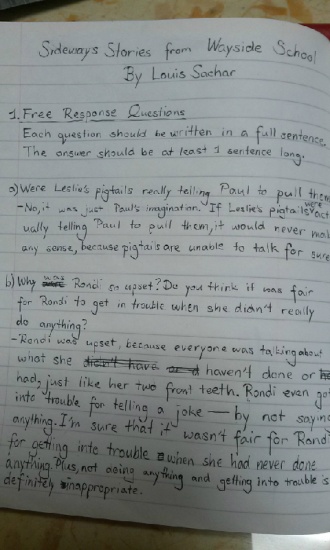 Sideways Stories from Wayside School
By Louis Sachar
1. Free Response Questions
Each question should be written in a full sentence.
The answer should be at least 1 sentence long.
a) Were Leslie's pigtails really telling Paul to pull them
- No, it was just Paul's imagination. If Leslie's pigtails were act
ually telling Paul to pull them, it would never mak
any sense, because pigtails are unable to talk for sure
b) Why was Rondi so upset? Do you think it was fair
for Rondi to get in trouble when she didn't really
do anything?
- Rondi was upset, because everyone was talking about
what she didn't have or d haven't done or
had, just like her two front teeth. Rondi even got
into trouble for telling a joke — by not saying
anything. I'm sure that it wasn't fair for Rondi
for getting into trouble when she had never done
anything. Plus, not doing anything and getting into trouble is
definitely inappropriate.